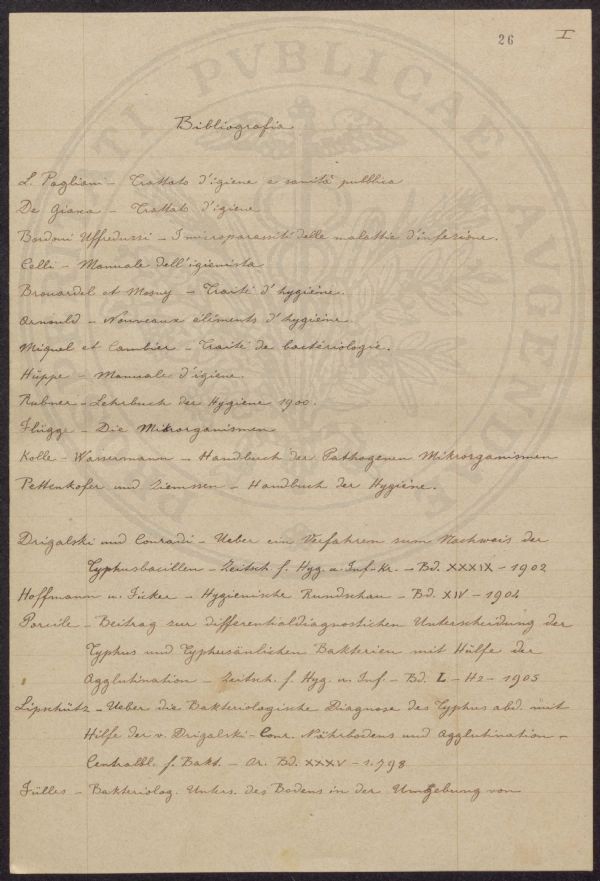 26 I
Bibliografia
L. Pagliani - Trattato d'igiene e sanità pubblica
De Giaxa - Trattato d'igiene
Bordoni Uffreduzzi - I microparassiti delle malattie d'infezione.
Celli - Manuale dell'igienista
Brouardel et Mosny - Traité d'hygiéne.
Arnould - Nouveaux éléments d'hygiéne
Miquel et Cambier - Traité de bactériologie.
Hüppe - Manuale d'igiene.
Rubner - Lehrbuch der Hygiene 1900.
Flügge - Die Mikrorganismen
Kolle - Wassermann - Handbuch der Pathogenen Mikrorganismen
Pettenkofer und Ziemssen - Handbuch der Hygiene.
Drigalski und Conradi - Ueber ein Verfahren zum Nachweis der
Typhusbacillen - Zeitsch. f. Hyg. u. Inf. Kr. - Bd. XXXIX - 1902
Hoffmann u. Ficker - Hygienische Rundschau - Bd. XIV - 1904
Porcile - Beitrag zur differentialdiagnostichen Unterscheidung der
Typhus und Typhusänlichen Bakterien mit Hülfe der
Agglutination - Zeitsch. f. Hyg. u. Inf. - Bd. L - H2 - 1905
Lipschütz - Ueber die Bakteriologische Diagnose des Typhus abd. mit
Hilfe der v. Drigalski-Conr. Nährbodens und Agglutination -
Centralbl. f. Bakt. - Or. Bd. XXXV - s. 798
Fülles - Bakteriolog. Unters. des Bodens in der Umgebung von